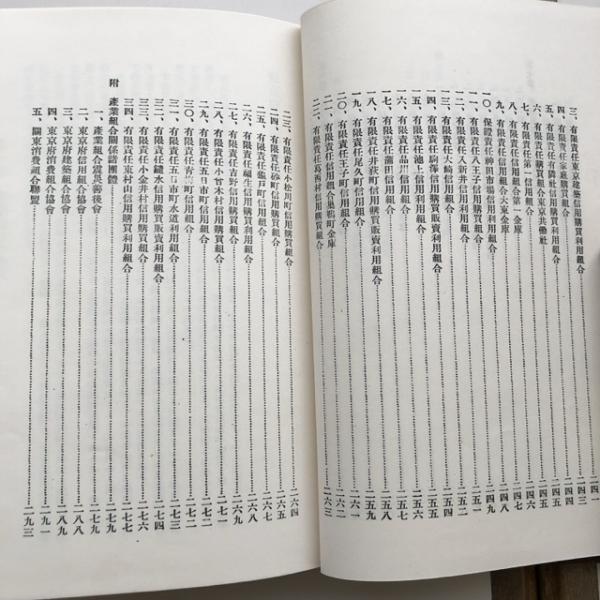 三、有限責任東京建築信用購買利用組合……一四一
四、有限責任家庭購買組合……一四三
五、有限責任有隣社信用購買利用組合……一四四
六、有限責任購買組合東京共働社……一四五
七、有限責任第一信用組合……一四七
八、有限責任信用組合第一金庫……一四八
九、有限責任信用組合大東金庫……一四九
一〇、保證責任神田市場信用利用組合……一四九
一一、有限責任八王子信用組合……一五一
一二、有限責任新井信用組合……一五二
一三、有限責任大崎信用組合……一五四
一四、有限責任駒澤信用購買販賣利用組合……一五五
一五、有限責任池上信用利用組合……一五五
一六、有限責任品川信用組合……一五六
一七、有限責任蒲田信用組合……一五七
一八、有限責任井荻町信用購買販賣利用組合……一五八
一九、有限責任尾久町信用組合……一五九
二〇、有限責任王子町信用組合……一六〇
二一、有限責任信用組合巢鴨町金庫……一六二
二二、有限責任葛西村信用購買組合……一六三
二三、有限責任小松川町信用購買利用組合……一六四
二四、有限責任砂町信用購買組合……一六五
二五、有限責任龜戸町信用組合……一六七
二六、有限責任福生信用購買利用組合……一六八
二七、有限責任吉野信用購買組合……一六九
二八、有限責任小曾木村信用購買組合……一七一
二九、有限責任五日市町信用組合……一七二
三〇、有限責任青ヶ島信用組合……一七二
三一、有限責任五日市町水道利用組合……一七三
三二、有限責任鑓水信用購買販賣利用組合……一七五
三三、有限責任小金井村信用利用組合……一七六
三四、有限責任東村山信用購買利用組合……一七七
附 產業組合關係諸團體……一七九
一、產業組合震災善後會……一七九
二、東京府信用組合協會……一八八
三、東京府建築組合協會……一八九
四、東京府消費組合協會……一九一
五、關東消費組合聯盟……一九三